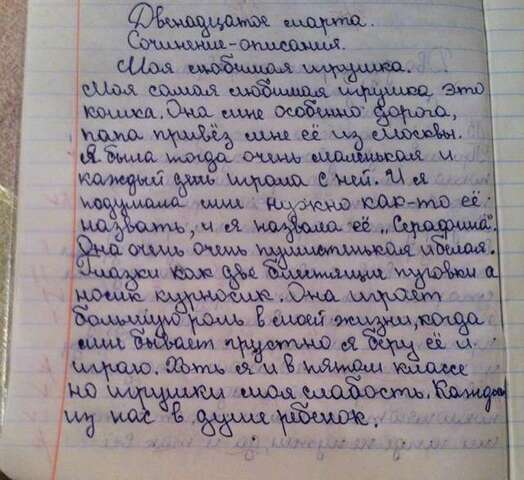 Двенадцатое марта.
Сочинение-описания.
Моя любимая игрушка.
Моя самая любимая игрушка это
кошка. Она мне особенно дорога,
папа привёз мне её из Москвы.
Я была тогда очень маленькая и
каждый день играла с ней. И я
подумала мне нужно как-то её
назвать, и я назвала её „Серафина".
Она очень очень пушистенькая и белая.
Глазки как две блестящие пуговки а
носик курносик. Она играет
большую роль в моей жизни, когда
мне бывает грустно я беру её и
играю. Хоть я и в пятом классе
но игрушки моя слабость. Каждый
из нас в душе ребёнок.